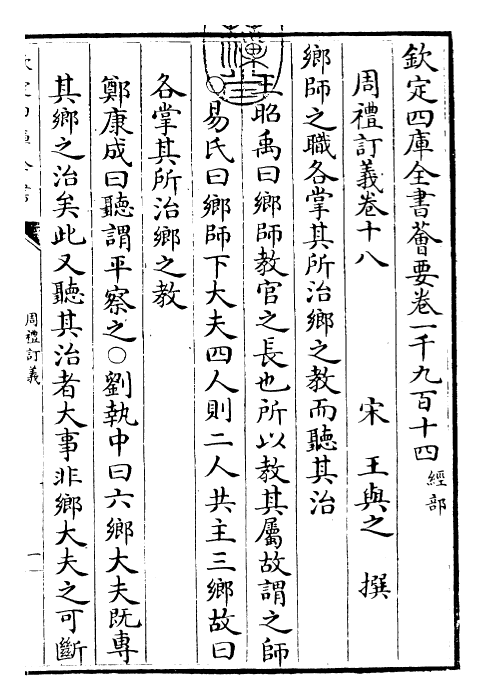 欽定四庫全書薈要卷一千九百十四 經部
周禮訂義卷十八 宋 王與之 撰
鄉師之職各掌其所治鄉之教而聽其治
王昭禹曰鄉師教官之長也所以教其屬故謂之師
○易氏曰鄉師下大夫四人則二人共主三鄉故曰
各掌其所治鄉之教
鄭康成曰聽謂平察之○劉執中曰六鄉大夫既專
其鄉之治矣此又聽其治者大事非鄉大夫之可斷
周禮訂義
一